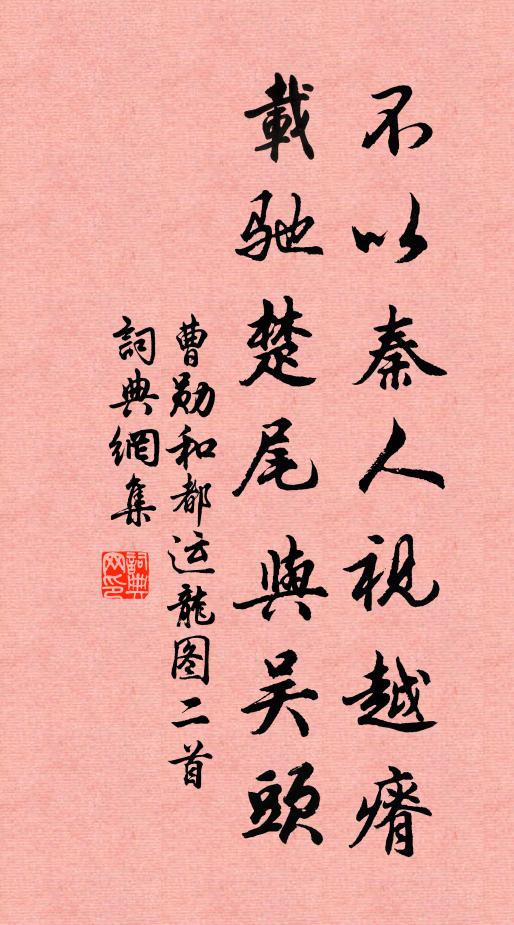 不以秦人視越瘠
載驰楚尾與吴頭
曹勋和都运龍图二首
詞典網集
詞典網印